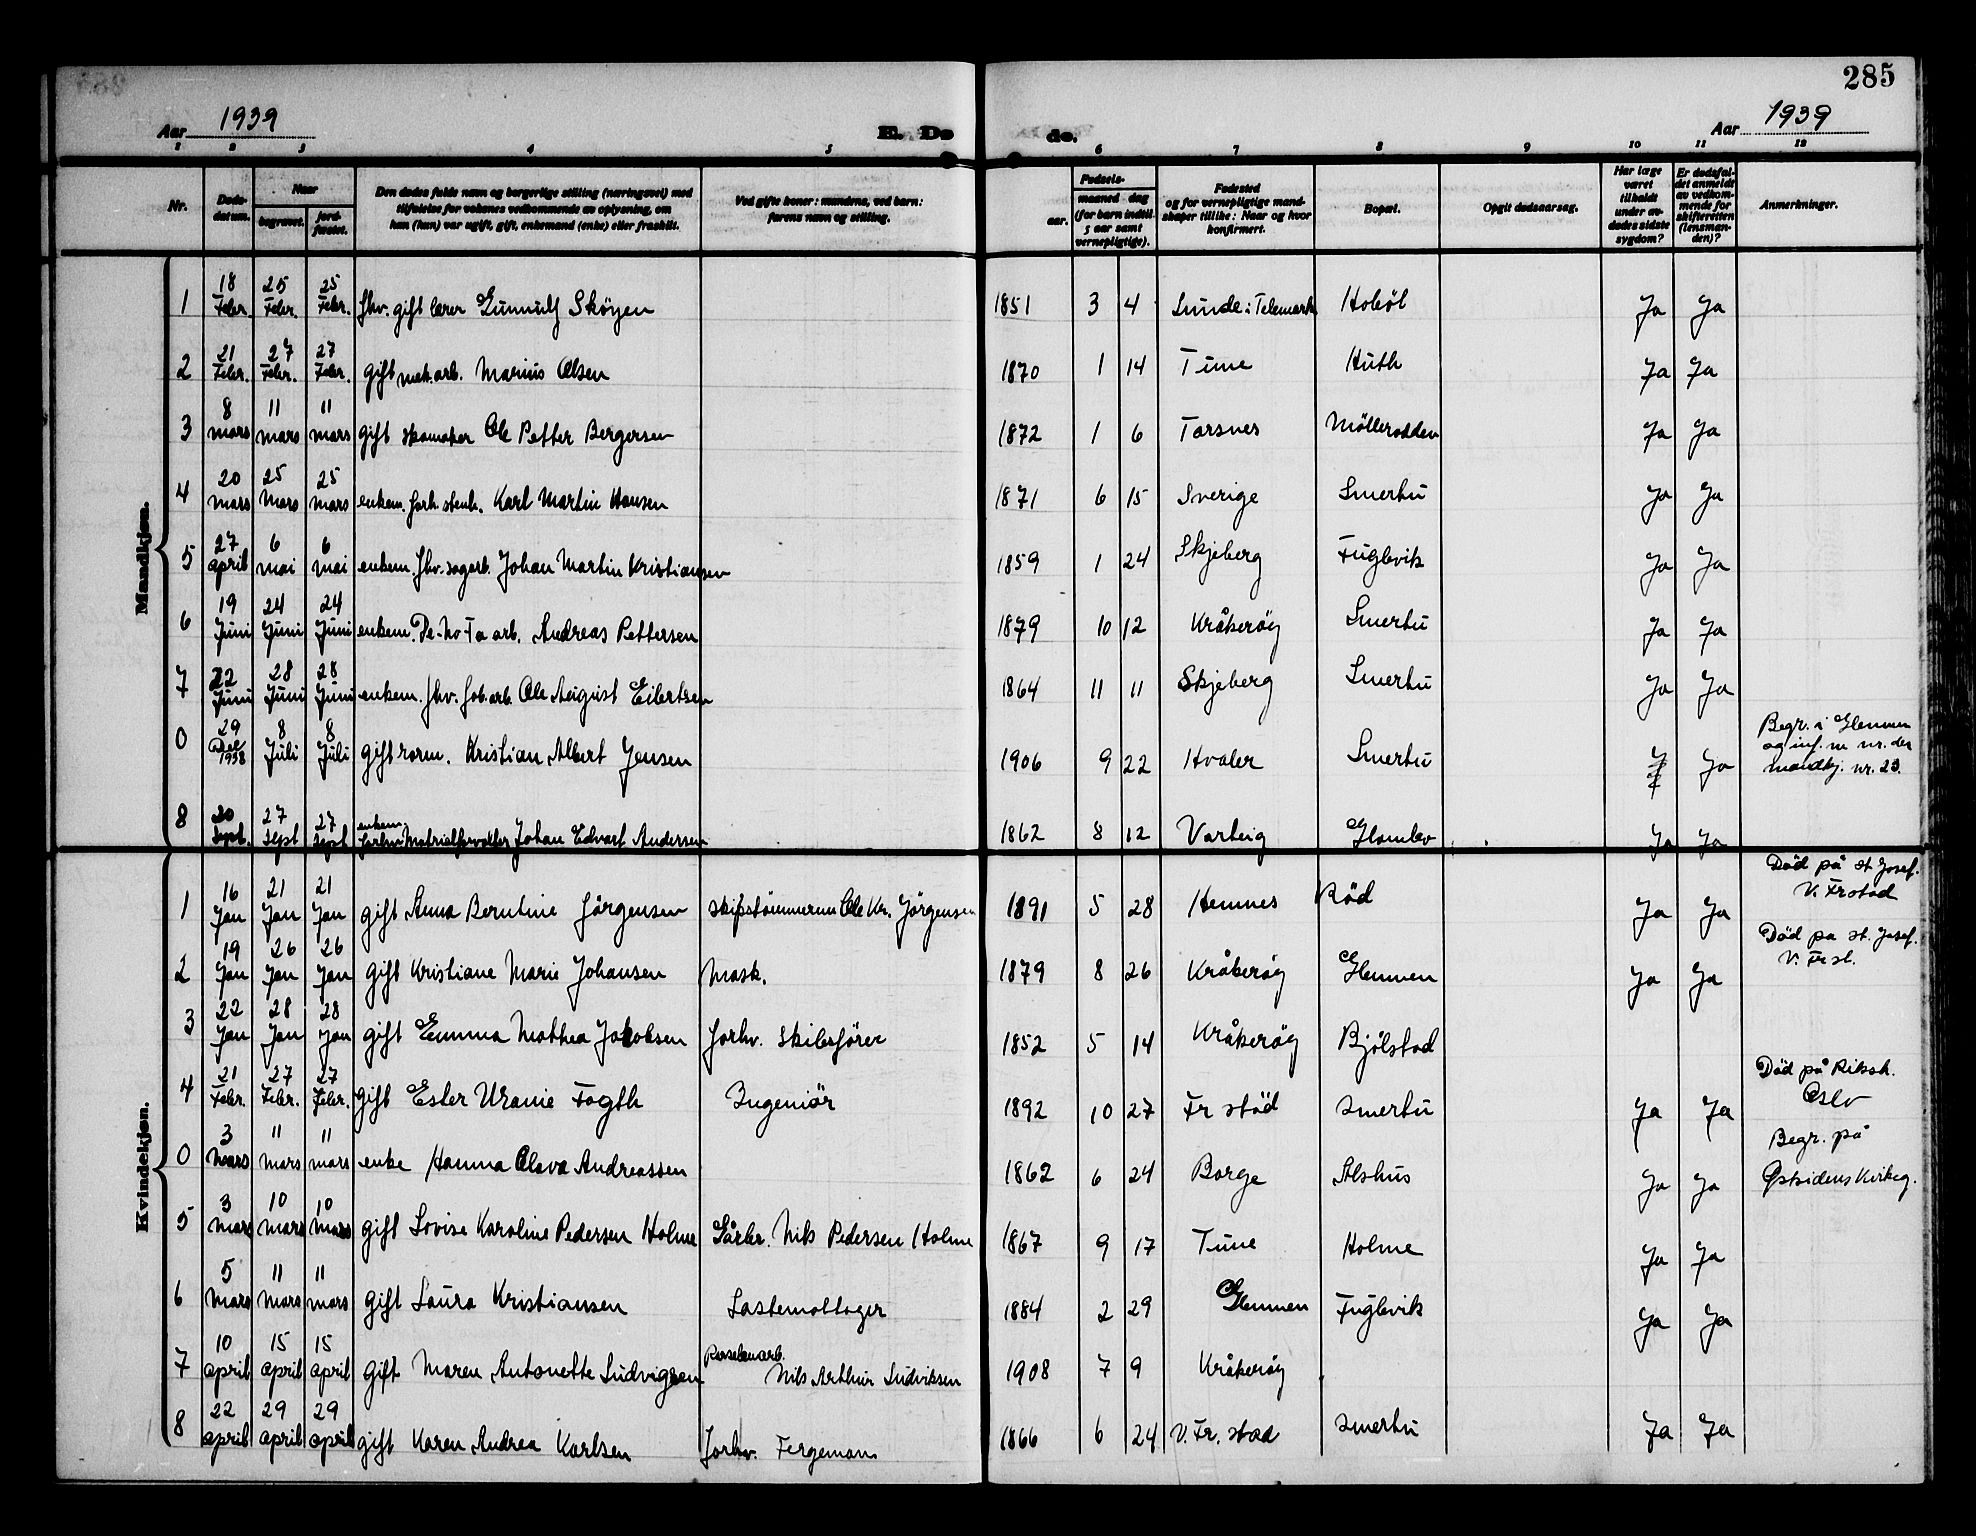 285
Aar 1939 E. Dø de. Aar 1939
1 2 3 4 5 6 7 8 9 10 11 12
Nr. Døds-datum. Naar begravet. jord-fæstet. Den dødes fulde navn og borgerlige stilling (næringsvei) med tilføielse for voksnes vedkommende av oplysning, om han (hun) var ugift, gift, enkemand (enke) eller fraskilt. Ved gifte koner: mandens, ved barn: farens navn og stilling. Fødsels- aar. maaned dag (for barn indtil 5 aar samt vernepligtige). Fødested og for vernepligtige mandskaper tillike: Naar og hvor konfirmert. Bopæl. Opgit dødsaarsag. Har læge været tilkaldt under avdødes sidste sygdom? Er dødsfaldet anmeldt av vedkommende for skifteretten (lensmanden)? Anmerkninger.
Mandkjøn.
1 18 Febr. 25 Febr. 25 Febr. fhv. gift lærer Gunnulf Skøyen 1851 3 4 Lunde i Telemark Hobøl Ja Ja
2 21 Febr. 27 Febr. 27 Febr. gift mek. arb. Marius Olsen 1870 1 14 Tune Huth Ja Ja
3 8 mars 11 mars 11 mars gift skomaker Ole Petter Bergersen 1872 1 6 Torsnes Möllerodden Ja Ja
4 20 mars 25 Mars 25 mars enkem. forh. stenh. Karl Martin Hansen 1871 6 15 Sverige Smertu Ja Ja
5 27 april 6 mai 6 mai enkem. fhv. sagarb. Johan Martin Kristiansen 1859 1 24 Skjeberg Fuglevik Ja Ja
6 19 Juni 24 Juni 24 Juni enkem. De-No-Fa arb. Andreas Pettersen 1879 10 12 Kråkerøy Smertu Ja Ja
7 22 Juni 28 Juni 28 Juni enkem. fhv. fab. arb. Ole August Eilertsen 1864 11 11 Skjeberg Smertu Ja Ja
0 29 Des 1938 8 Juli 8 Juli gift rorm. Kristian Albert Jensen 1906 9 22 Hvaler Smertu Ja Begr. i Glemmen
og inf. m nr. der
mandkj. nr. 23.
8 20 Sept. 27 Sept 27 Sept enkem. forhv. Matrialforvalter Johan Edvart Andersen 1862 8 12 Varteig Glombo Ja Ja
Kvindekjøn.
1 16 Jan 21 Jan 21 Jan gift Anna Berntine Jörgensen skipstömmerm Ole Kr. Jörgensen 1891 5 28 Hemnes Röd Ja Ja Död på St Josef.
V. Frstad
2 19 Jan 26 Jan 26 Jan gift Kristiane Marie Johansen Mask. 1879 8 26 Kråkerøy Glemmen Ja Ja Död på st. Josef.
V. Frst.
3 22 Jan 28 Jan 28 Jan gift Emma Mathea Jakobsen Forhv. Skibsförer 1852 5 14 Kråkerøy Bjölstad
4 21 Febr. 27 Febr. 27 Febr. gift Ester Uranie Fogth Ingeniör 1892 10 27 Fr stad Smertu Ja Ja Död på Riksh.
Oslo
0 3 Mars 11 mars 11 mars enke Hanna Olava Andreassen 1862 6 24 Borge Alshus Ja Ja Begr. på
Østsidens Kirkeg.
5 3 mars 10 mars 10 mars gift Lovise Karoline Pedersen Holme Gårbr. Nils Pedersen Holme 1867 9 17 Tune Holme Ja Ja
6 5 Mars 11 mars 11 mars gift Laura Kristiansen Lastemottager 1884 2 29 Glemmen Fuglevik Ja Ja
7 10 april 15 april 15 april gift Maren Antonette Ludvigsen Nils Arthur Ludviksen 1908 7 9 Kråkerøy
8 22 april 29 april 29 april gift Karen Andrea Karlsen Forhv. Fergemann 1866 6 24 V. Fr. stad Smertu Ja Ja